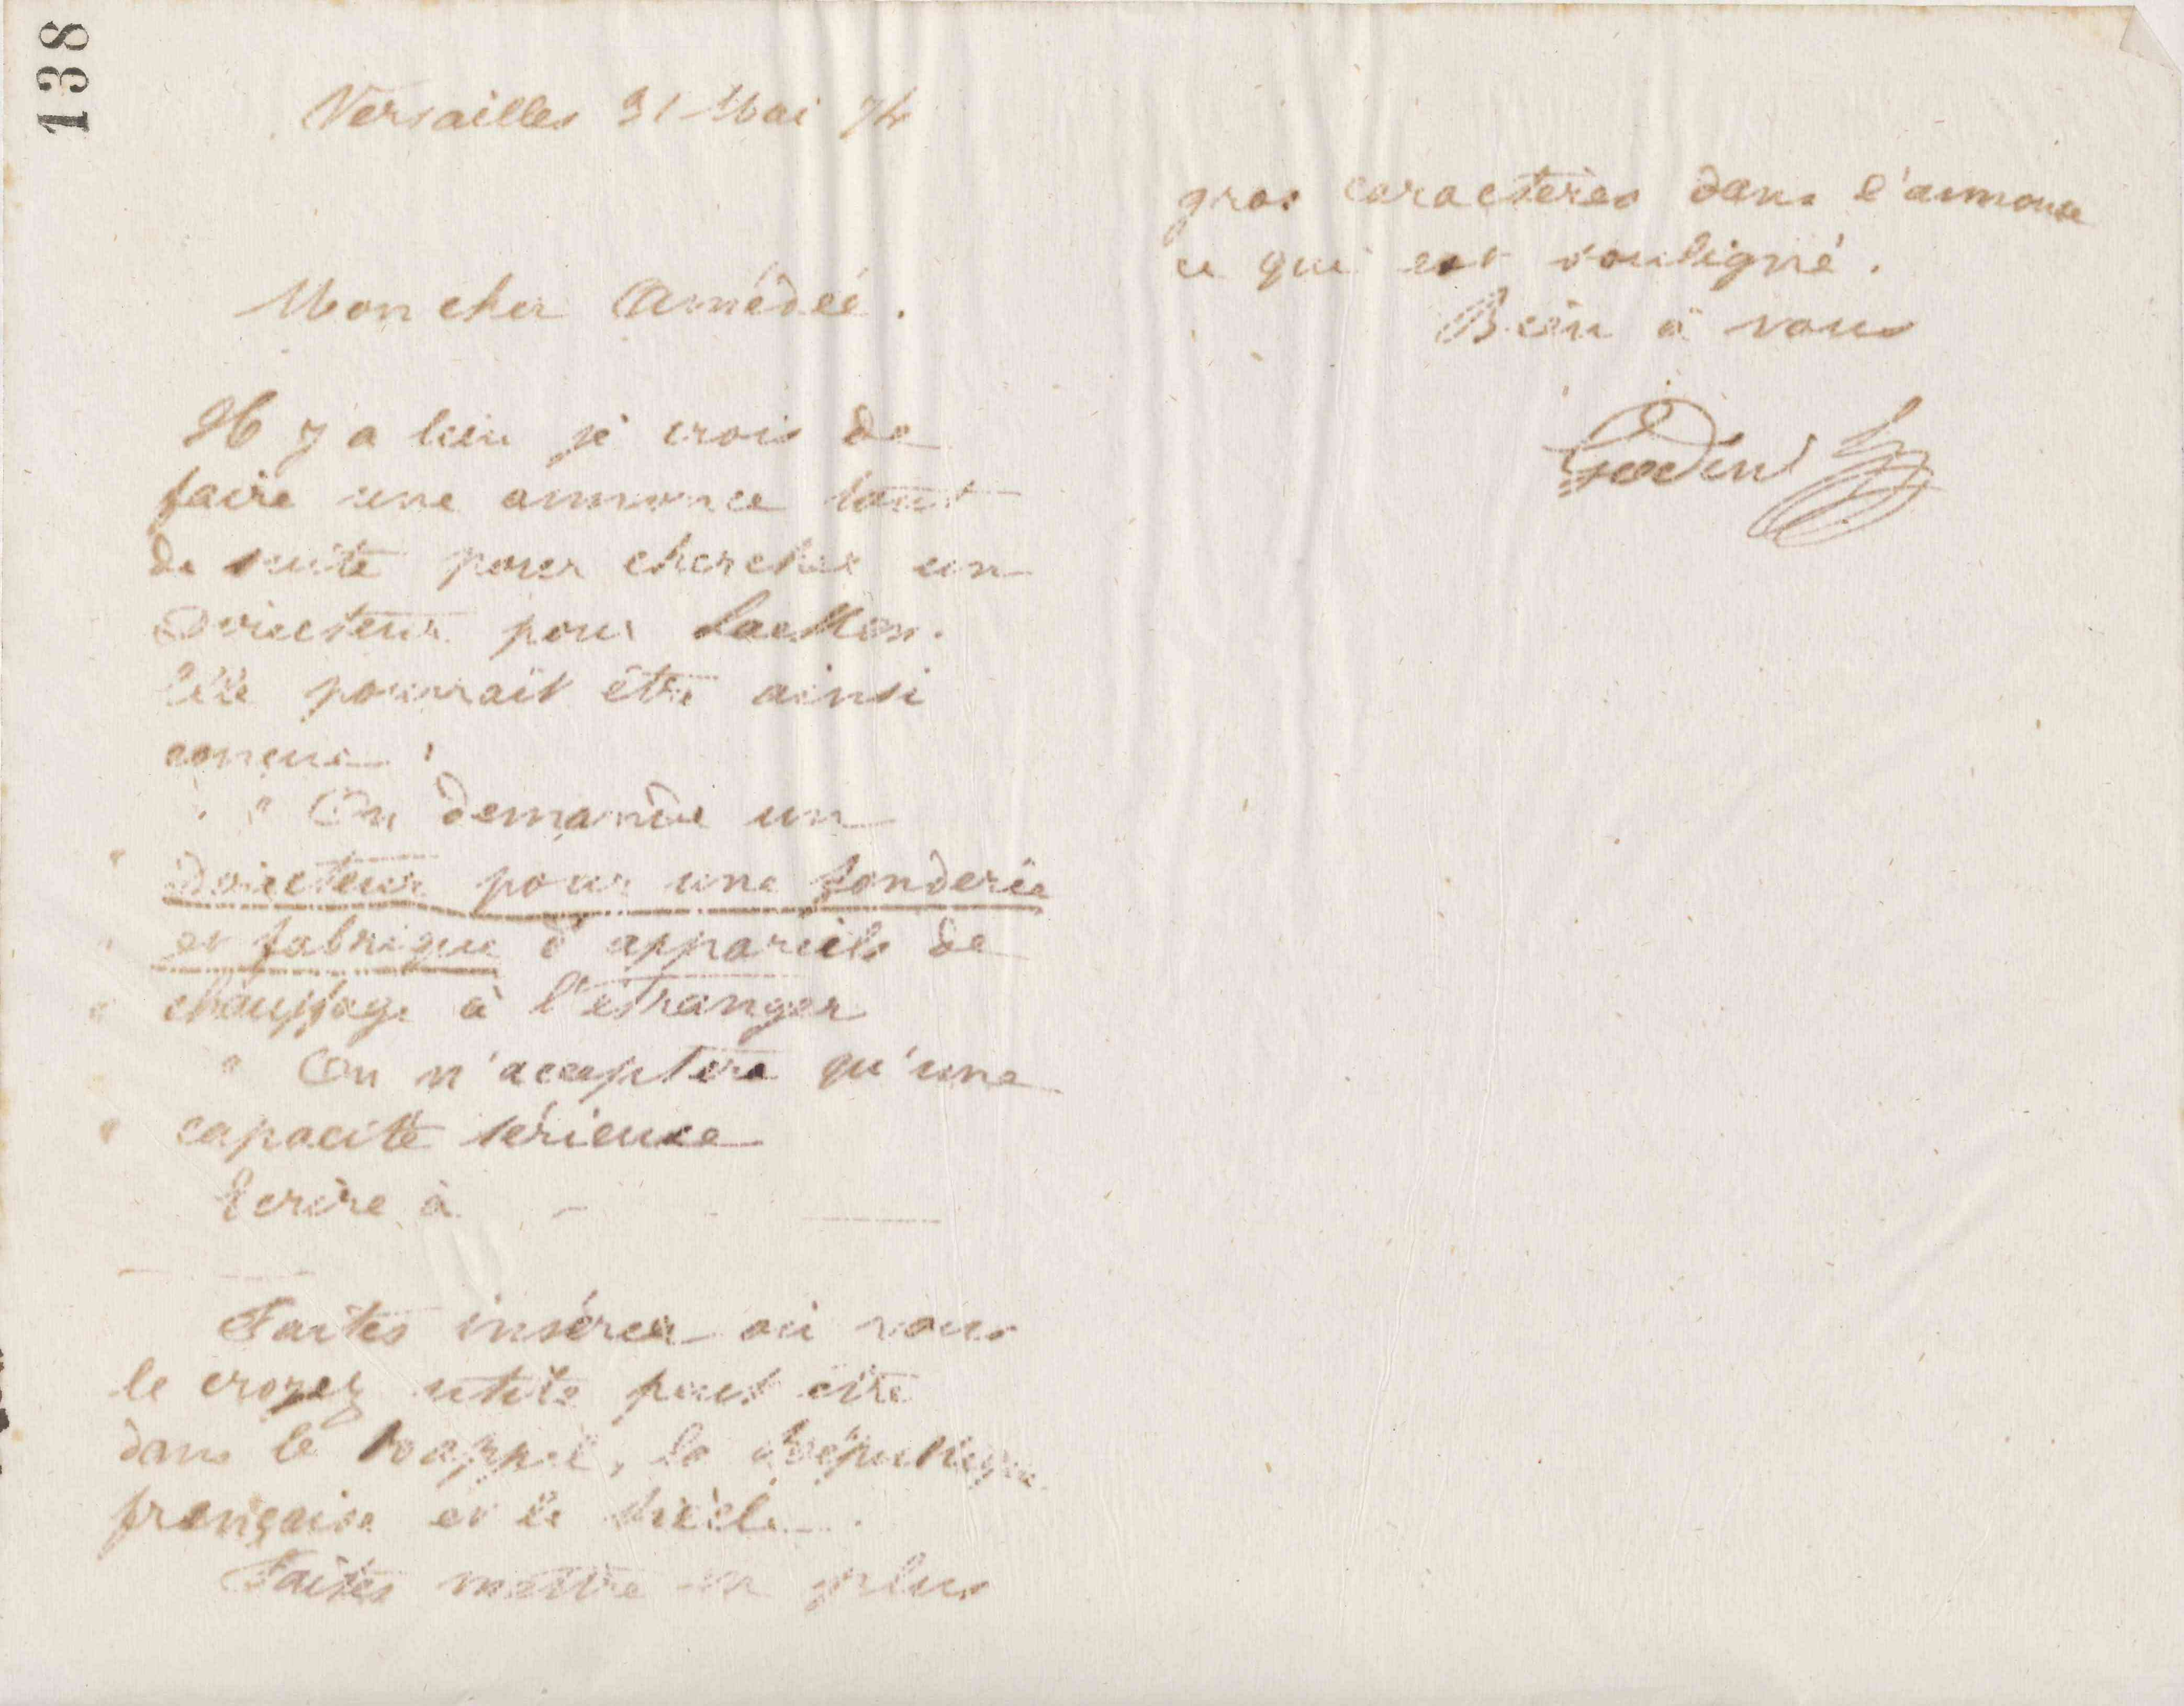 138
Versailles 31 Mai 74
Mon cher Amédée.
Il y a lieu je crois de
faire une annonce tout
de suite pour chercher un
Directeur pour Laeken.
Elle pourrait être ainsi
conçue :
" On demande un
" directeur pour une fonderie
" et fabrique d'appareils de
" chauffage à l'étranger
" On n'acceptera qu'une
" capacité sérieuse
Ecrire à
Faites insérer où vous
le croyez utile peut être
dans le Rappel, la République
française et le Siècle.
Faites mettre en plus
gros caractères dans l'annonce
ce qui est souligné.
Bien à vous
Godin